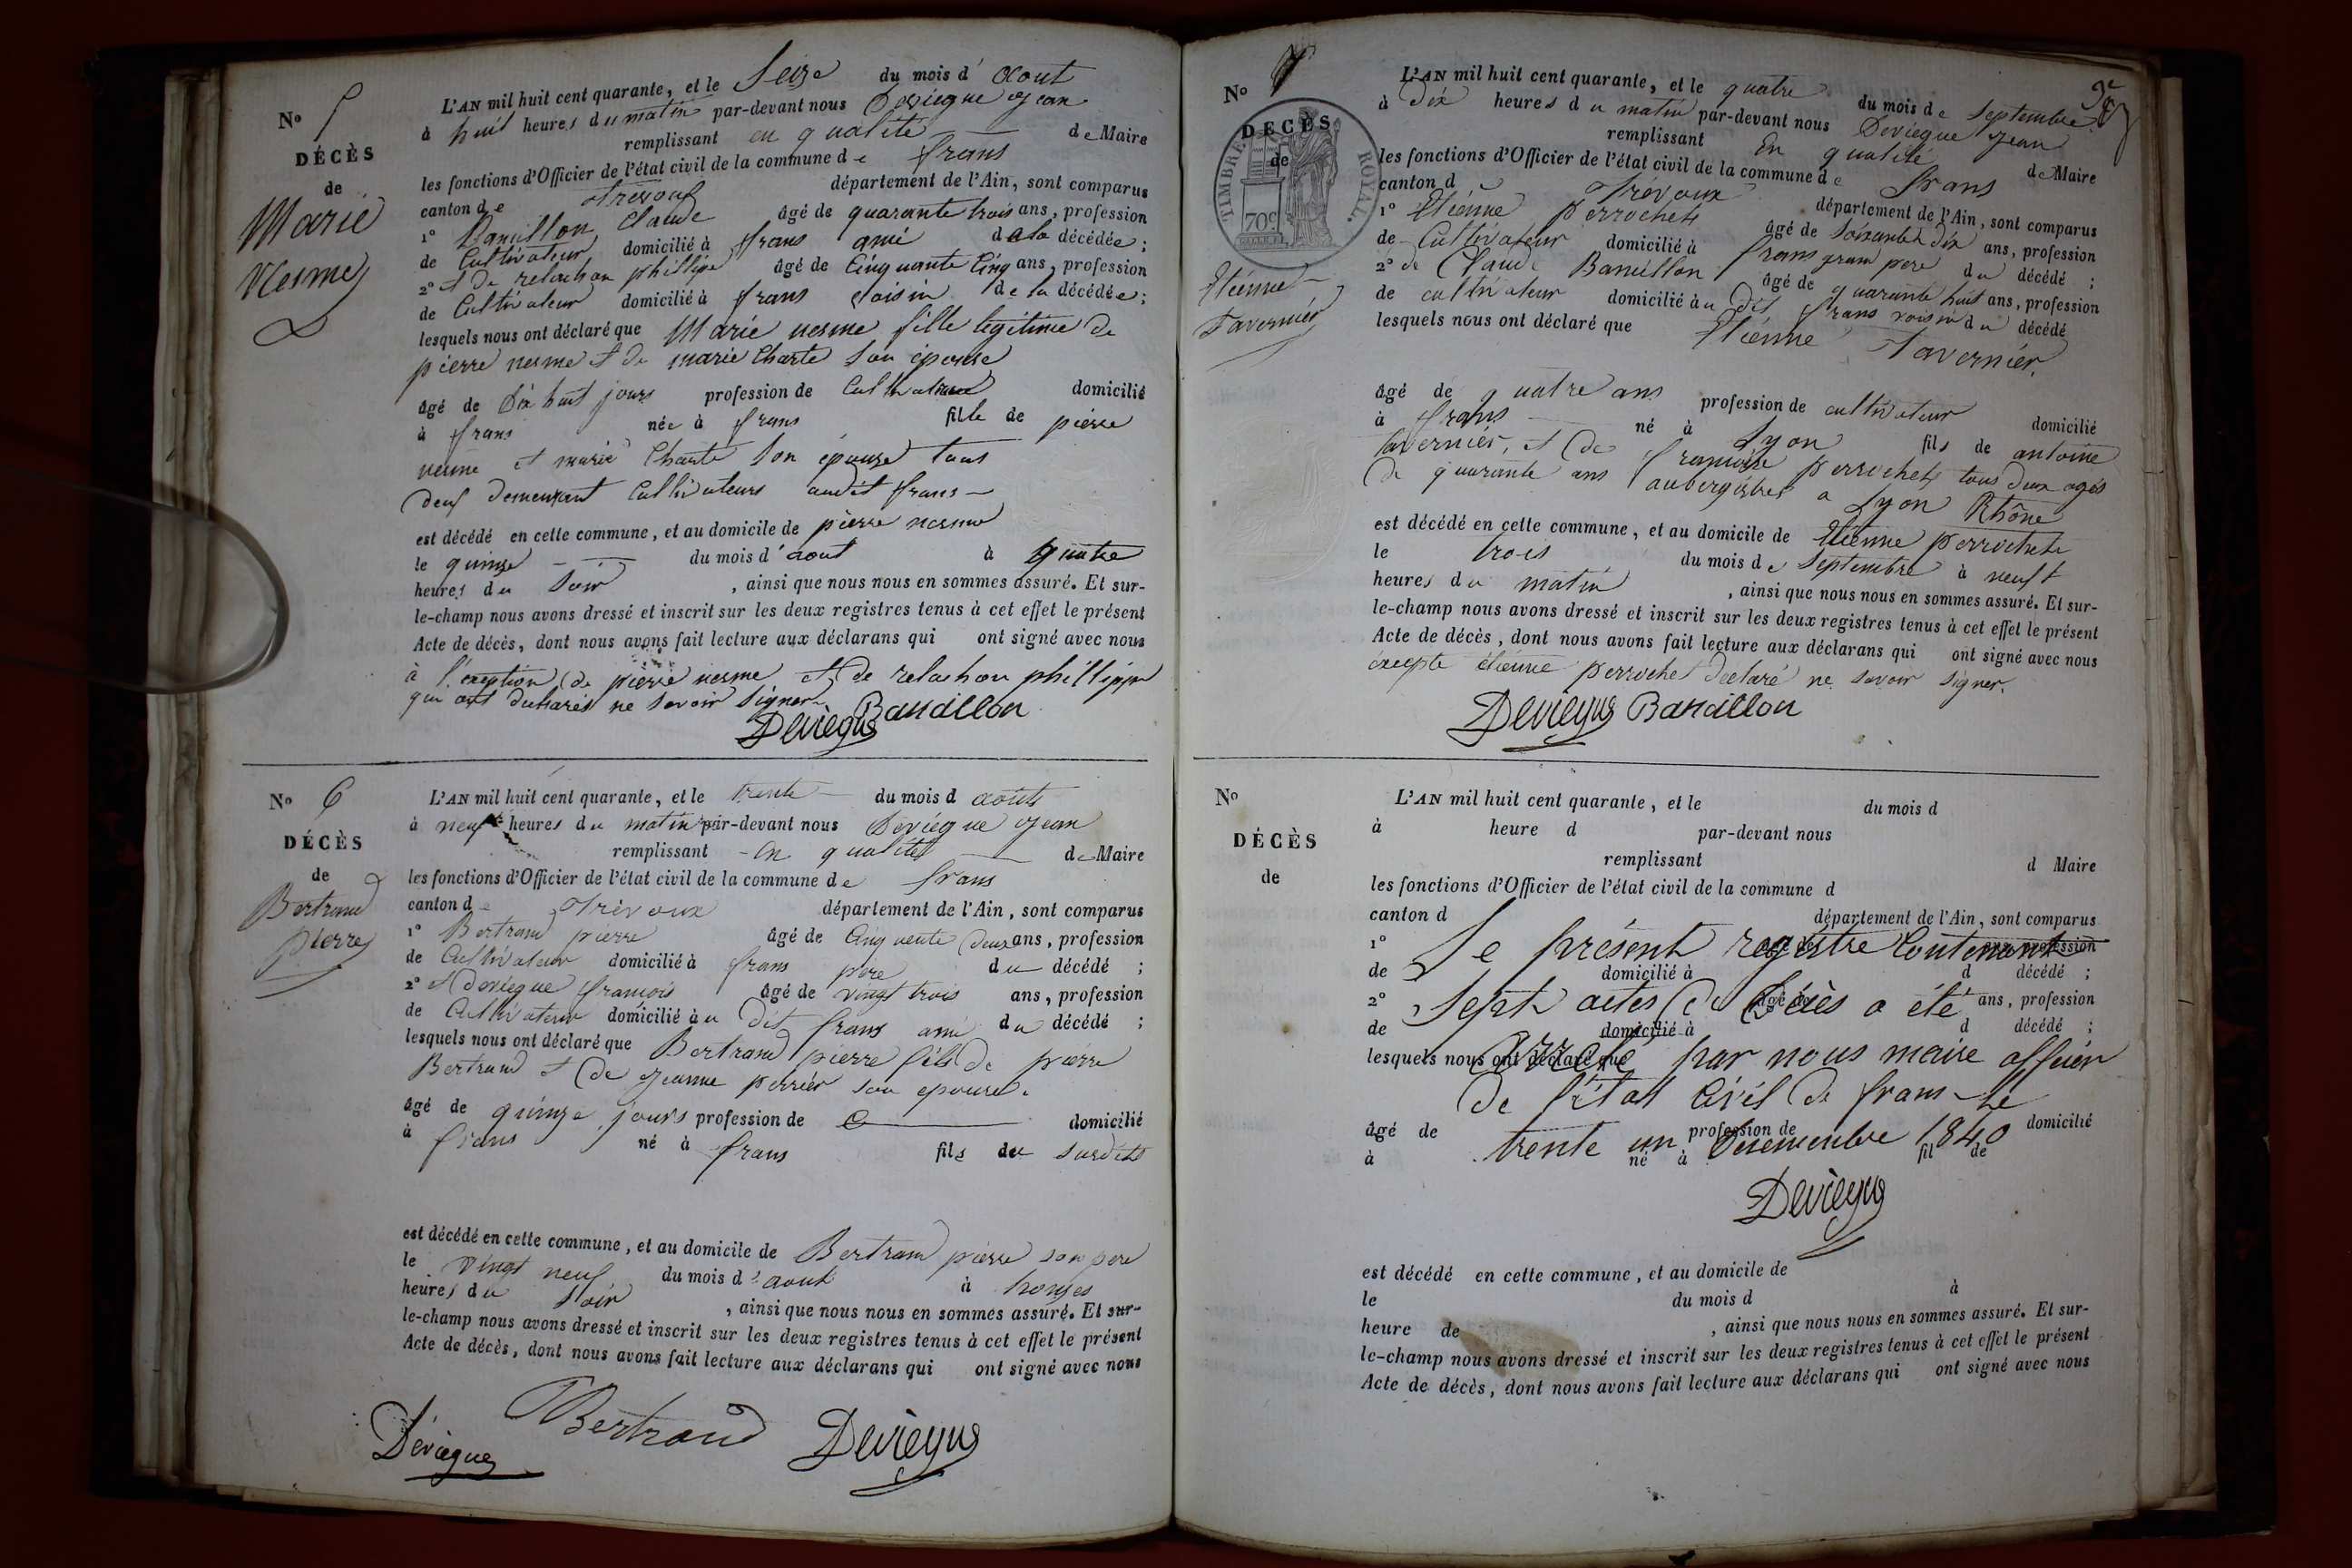 No 5
DÉCÈS
de
Marie
Nesme
L'AN mil huit cent quarante, et le Seize du mois d'Aout
à huit heures du matin par-devant nous Deviegue Jean
remplissant en qualité de Maire
les fonctions d'Officier de l'état civil de la commune de frans
canton de Trévoux département de l'Ain, sont comparus
1° Banillon Claude âgé de quarante trois ans, profession
de Cultivateur domicilié à frans ami de la décédée;
2° et de relachon phillipe âgé de Cinquante Cinq ans, profession
de Cultivateur domicilié à frans voisin de la décédée;
lesquels nous ont déclaré que Marie nesme fille légitime de
pierre nesme et de marie Charte son épouse
âgé de Dix huit jours profession de Cultivatrice domicilié
à frans née à frans fille de pierre
nesme et marie Charte son épouse tous
deux demeurant Cultivateurs audit frans
est décédé en cette commune, et au domicile de pierre nesme
le quinze du mois d'aout à quatre
heures du soir, ainsi que nous nous en sommes assuré. Et sur-
le-champ nous avons dressé et inscrit sur les deux registres tenus à cet effet le présent
Acte de décès, dont nous avons fait lecture aux déclarans qui ont signé avec nous
à l'exeption de pierre nesme et de relachon phillippe
qui ont declarés ne savoir signer
Deviègue Banaillon
No 6
DÉCÈS
de
Bertrand
pierre
L'AN mil huit cent quarante, et le trente du mois d aoüt
à neuf heures du matin par-devant nous Deviegue Jean
remplissant en qualité de Maire
les fonctions d'Officier de l'état civil de la commune de frans
canton de Trévoux département de l'Ain, sont comparus
1° Bertrand pierre âgé de Cinquente Deux ans, profession
de Cultivateur domicilié à frans pere du décédé;
2° et Deviegue francois âgé de vingt trois ans, profession
de Cultivateur domicilié au Dit frans ami du décédé;
lesquels nous ont déclaré que Bertrand pierre fils de pierre
Bertrand et de Jeanne perrier son epouse.
âgé de quinze jours profession de domicilié
à frans né à frans fils du susdit
est décédé en cette commune, et au domicile de Bertrand pierre son pere
le vingt neuf du mois d'aout à honzes
heures du soir, ainsi que nous nous en sommes assuré. Et sur-
le-champ nous avons dressé et inscrit sur les deux registres tenus à cet effet le présent
Acte de décès, dont nous avons fait lecture aux déclarans qui ont signé avec nous
Déviegue Bertrand Deviegue
No 7
DÉCÈS
de
TIMBRE ROYAL
70c
Etiénne
Tavernier
L'AN mil huit cent quarante, et le quatre du mois de Septembre
à Dix heures du matin par-devant nous Deviegue Jean
remplissant En qualité de Maire
les fonctions d'Officier de l'état civil de la commune de frans
canton d Trevoux département de l'Ain, sont comparus
1° Etiénne perrochet âgé de soixante Dix ans, profession
de Cultivateur domicilié à frans gran pere du décédé;
2° de Claude Banillon âgé de quarante huit ans, profession
de cultivateur domicilié au Dit frans voisin du décédé
lesquels nous ont déclaré que Etiénne Tavernier.
âgé de quatre ans profession de cultivateur domicilié
à frans né à Lyon fils de antoine
tavernier, et de francoise perrochet tous deux agés
de quarante ans aubergistes a Lyon Rhône
est décédé en cette commune, et au domicile de Etiénne perrochet
le trois du mois de Septembre à neuf
heures du matin, ainsi que nous nous en sommes assuré. Et sur-
le-champ nous avons dressé et inscrit sur les deux registres tenus à cet effet le présent
Acte de décès, dont nous avons fait lecture aux déclarans qui ont signé avec nous
excepte étienne perrochet declaré ne savoir signer.
Deviegue Banaillon
No
DÉCÈS
de
L'AN mil huit cent quarante, et le du mois d
à heure d par-devant nous
remplissant d Maire
les fonctions d'Officier de l'état civil de la commune d
canton d département de l'Ain, sont comparus
1° âgé de ans, profession
Le présent registre Contenant
de domicilié à d décédé;
2° âgé de ans, profession
Sept actes de Décès a été
de domicilié à d décédé;
lesquels nous ont déclaré que
arreté par nous maire officier
de l'état Civil de frans le
âgé de profession de domicilié
trente un Decemenbre 1840
à né à fil de
Deviegue
est décédé en cette commune, et au domicile de
le du mois d à
heure de, ainsi que nous nous en sommes assuré. Et sur-
le-champ nous avons dressé et inscrit sur les deux registres tenus à cet effet le présent
Acte de décès, dont nous avons fait lecture aux déclarans qui ont signé avec nous